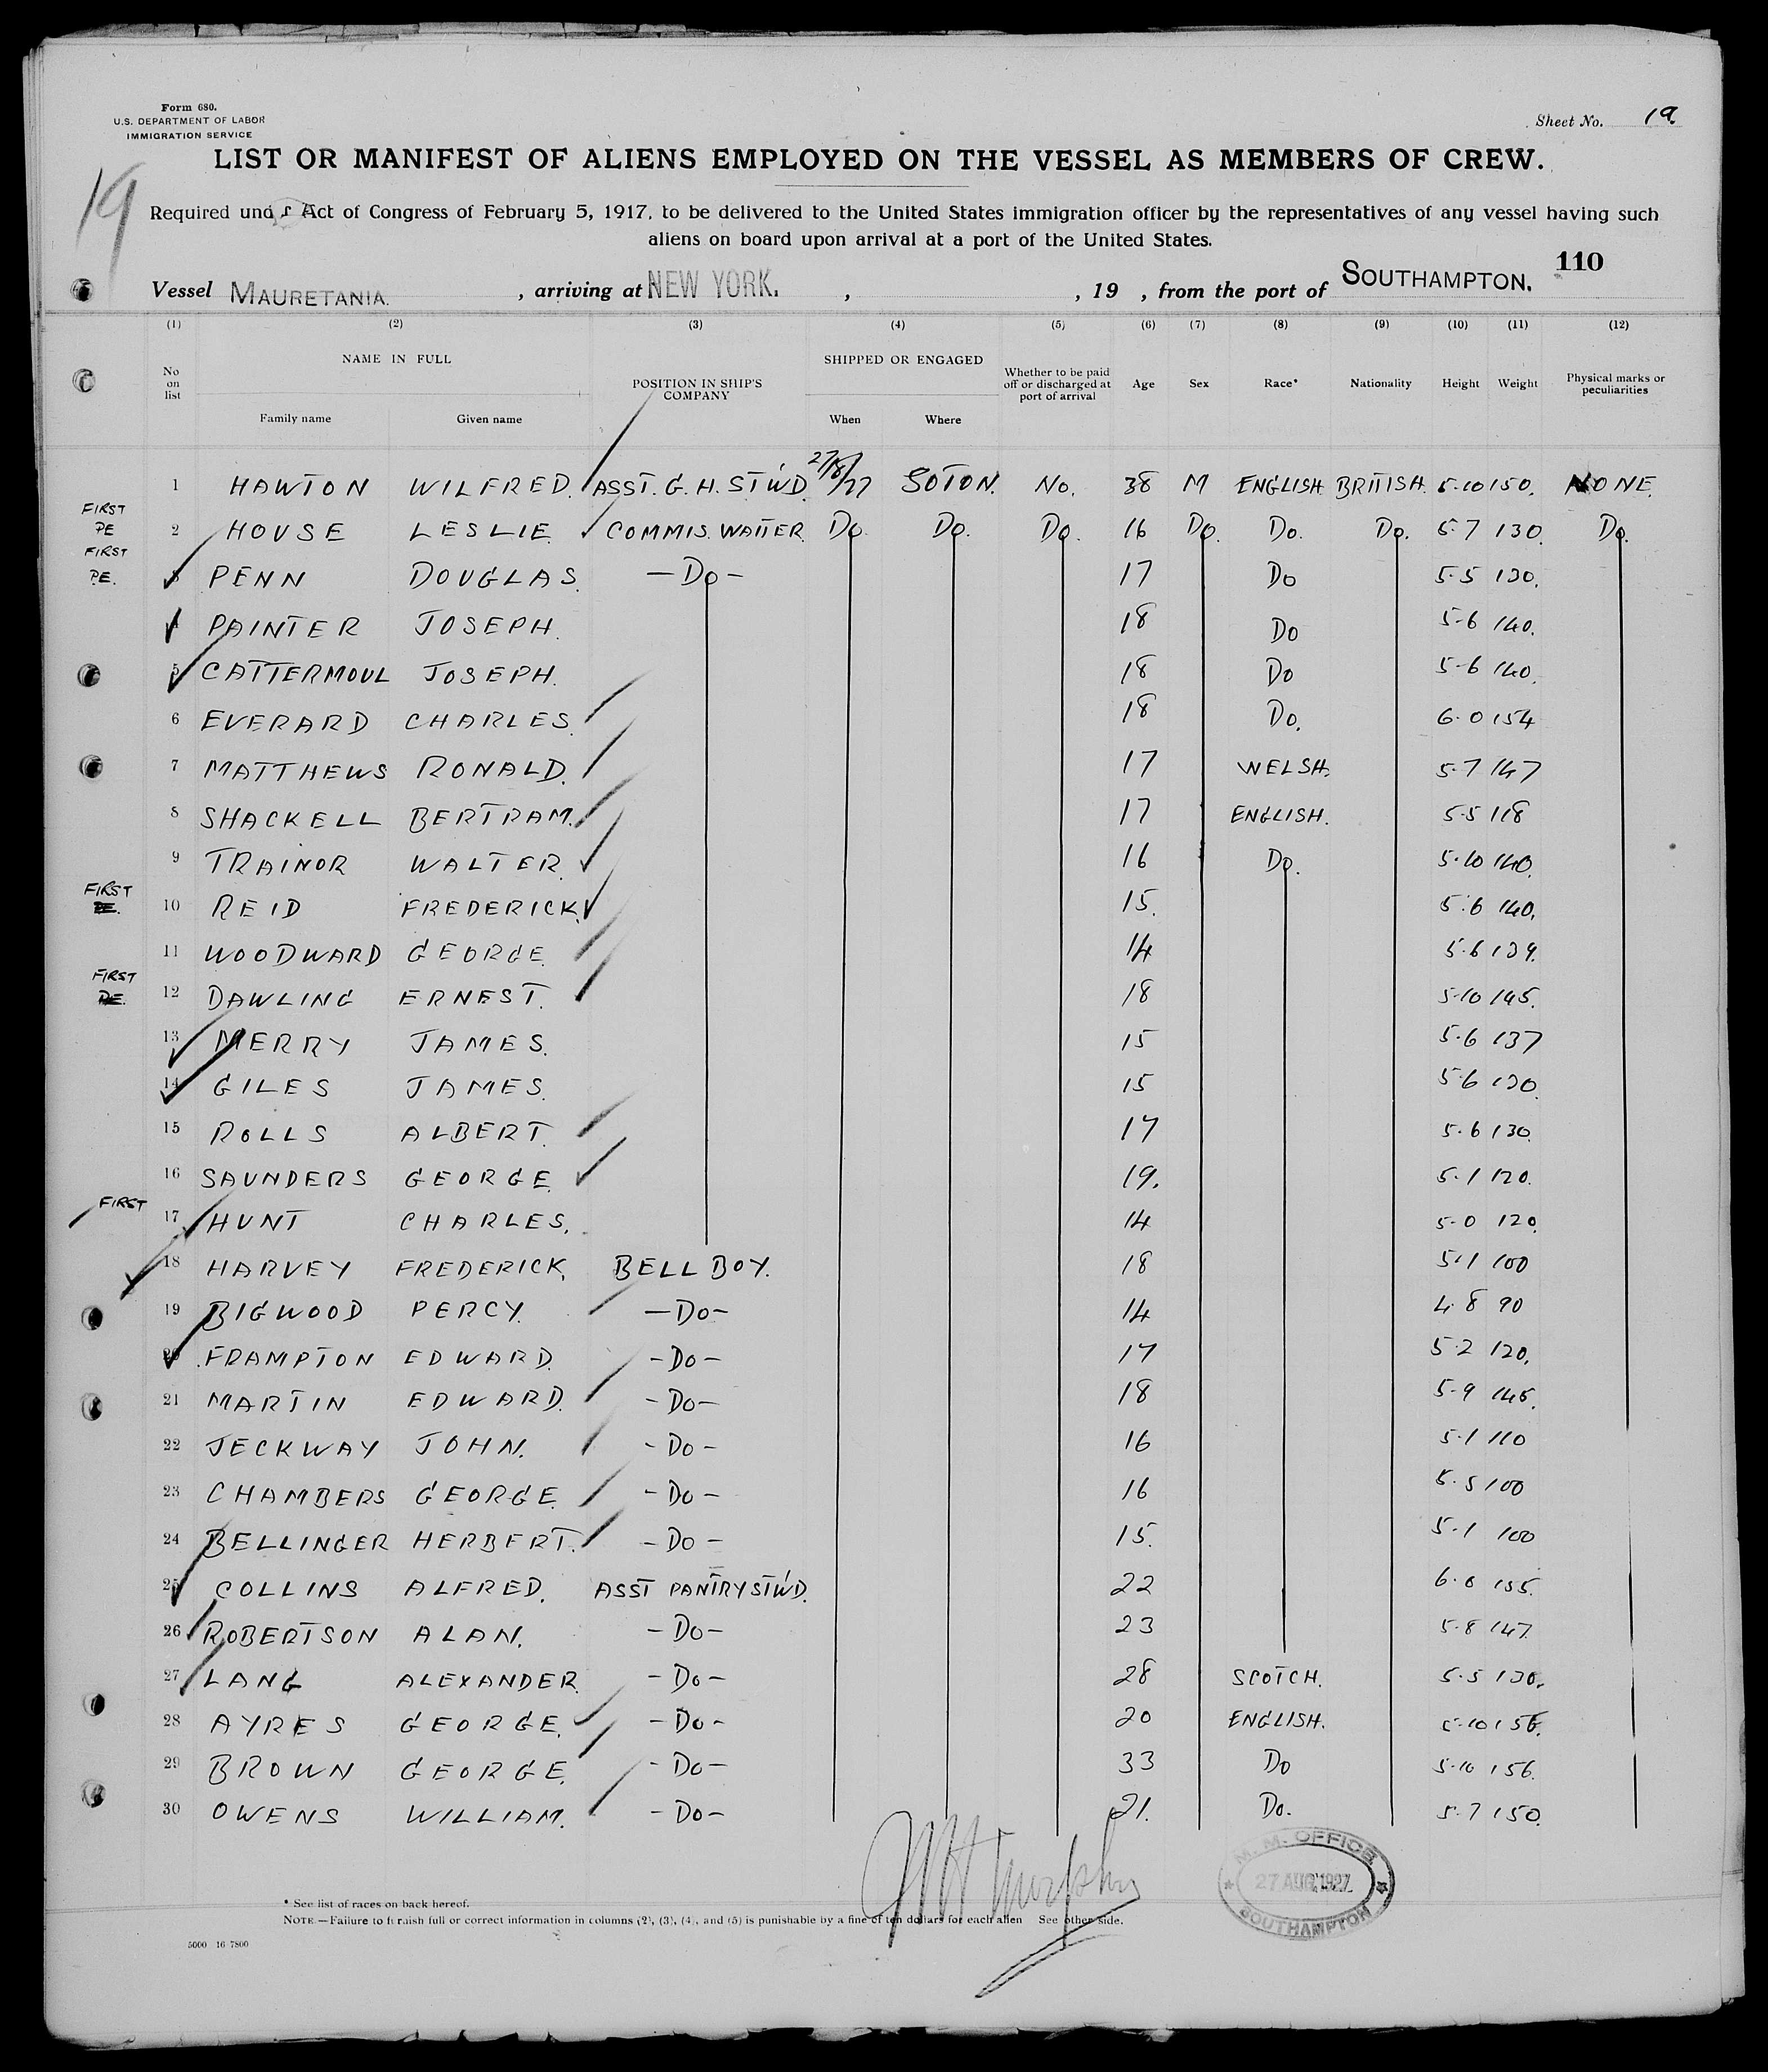 Form 680.
U.S. DEPARTMENT OF LABOR
IMMIGRATION SERVICE
Sheet No. 19.
LIST OR MANIFEST OF ALIENS EMPLOYED ON THE VESSEL AS MEMBERS OF CREW.
19
Required under Act of Congress of February 5, 1917, to be delivered to the United States immigration officer by the representatives of any vessel having such
aliens on board upon arrival at a port of the United States.
110
Vessel MAURETANIA. , arriving at NEW YORK. , , 19 , from the port of SOUTHAMPTON.
(1) (2) (3) (4) (5) (6) (7) (8) (9) (10) (11) (12)
No on list NAME IN FULL Family name Given name POSITION IN SHIP'S COMPANY SHIPPED OR ENGAGED When Where Whether to be paid off or discharged at port of arrival Age Sex Race* Nationality Height Weight Physical marks or peculiarities
1 HAWTON WILFRED. ASST. G. H. STWD. 27/8/27 SOTON. No. 38 M ENGLISH BRITISH. 5-10 150. NONE.
FIRST PE 2 HOUSE LESLIE. COMMIS. WAITER. Do Do. Do. 16 Do. Do. Do. 5-7 130. Do.
FIRST PE. 3 PENN DOUGLAS. -Do- 17 Do 5-5 130.
4 PAINTER JOSEPH. 18 Do 5-6 140.
5 CATTERMOUL JOSEPH. 18 Do 5-6 140.
6 EVERARD CHARLES. 18 Do. 6-0 154
7 MATTHEWS RONALD. 17 WELSH. 5-7 147
8 SHACKELL BERTRAM. 17 ENGLISH. 5-5 118
9 TRAINOR WALTER. 16 Do. 5-10 140.
FIRST PE. 10 REID FREDERICK. 15. 5-6 140.
11 WOODWARD GEORGE. 14 5-6 139.
FIRST PE. 12 DAWLING ERNEST. 18 5-10 145.
13 MERRY JAMES. 15 5-6 137
14 GILES JAMES. 15 5-6 130.
15 ROLLS ALBERT. 17 5-6 130.
16 SAUNDERS GEORGE. 19. 5-1 120.
FIRST 17 HUNT CHARLES. 14 5-0 120.
18 HARVEY FREDERICK. BELL BOY. 18 5-1 100
19 BIGWOOD PERCY. -Do- 14 4-8 90
20 FRAMPTON EDWARD. -Do- 17 5-2 120.
21 MARTIN EDWARD. -Do- 18 5-9 145.
22 JECKWAY JOHN. -Do- 16 5-1 110
23 CHAMBERS GEORGE. -Do- 16 5-5 100
24 BELLINGER HERBERT. -Do- 15. 5-1 100
25 COLLINS ALFRED. ASST PANTRY STWD. 22 6-0 155.
26 ROBERTSON ALAN. -Do- 23 5-8 147.
27 LANG ALEXANDER. -Do- 28 SCOTCH. 5-5 130.
28 AYRES GEORGE. -Do- 20 ENGLISH. 5-10 156.
29 BROWN GEORGE. -Do- 33 Do 5-10 156.
30 OWENS WILLIAM. -Do- 21. Do. 5-7 150.
M.M. OFFICE
27 AUG 1927
SOUTHAMPTON
* See list of races on back hereof.
NOTE.—Failure to furnish full or correct information in columns (2), (3), (4), and (5) is punishable by a fine of ten dollars for each alien See other side.
5000 16-7800